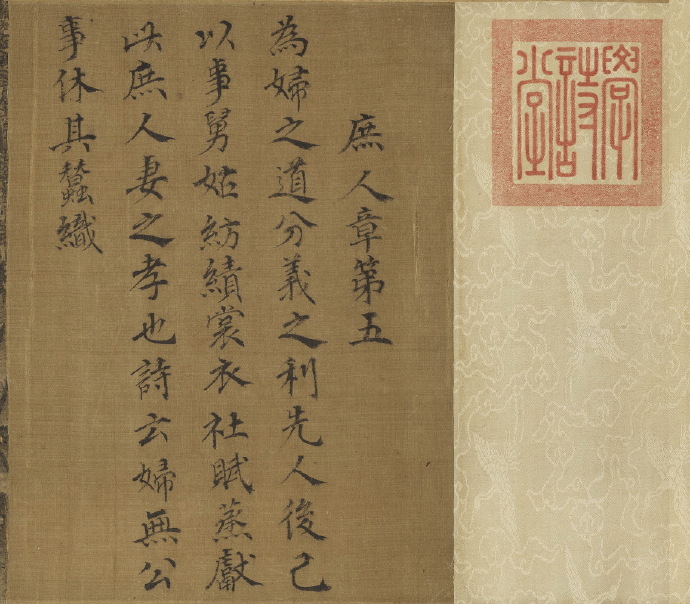 學詩堂
庶人章第五
為婦之道分義之利先人後己
以事舅姑紡績裳衣社賦蒸獻
此庶人妻之孝也詩云婦無公
事休其蠶織